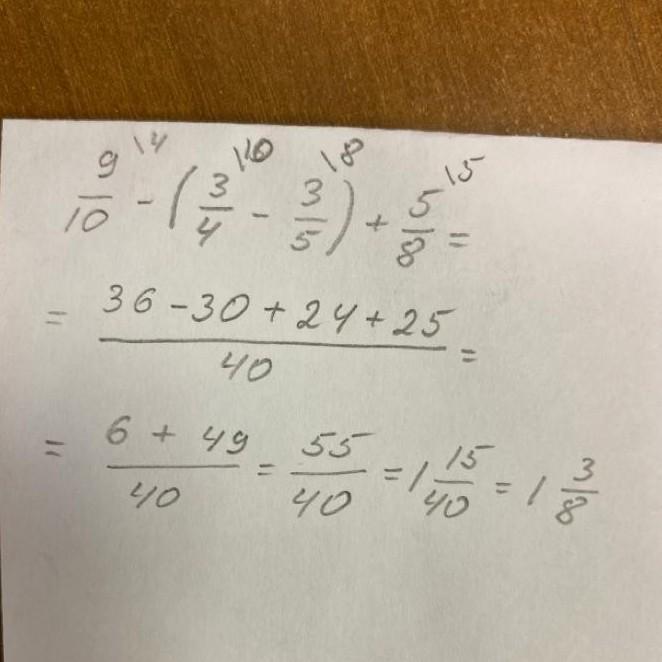 9/10 \4 - (3/4 \10 - 3/5 \8) + 5/8 \5 =
= (36 - 30 + 24 + 25)/40 =
= (6 + 49)/40 = 55/40 = 1 15/40 = 1 3/8